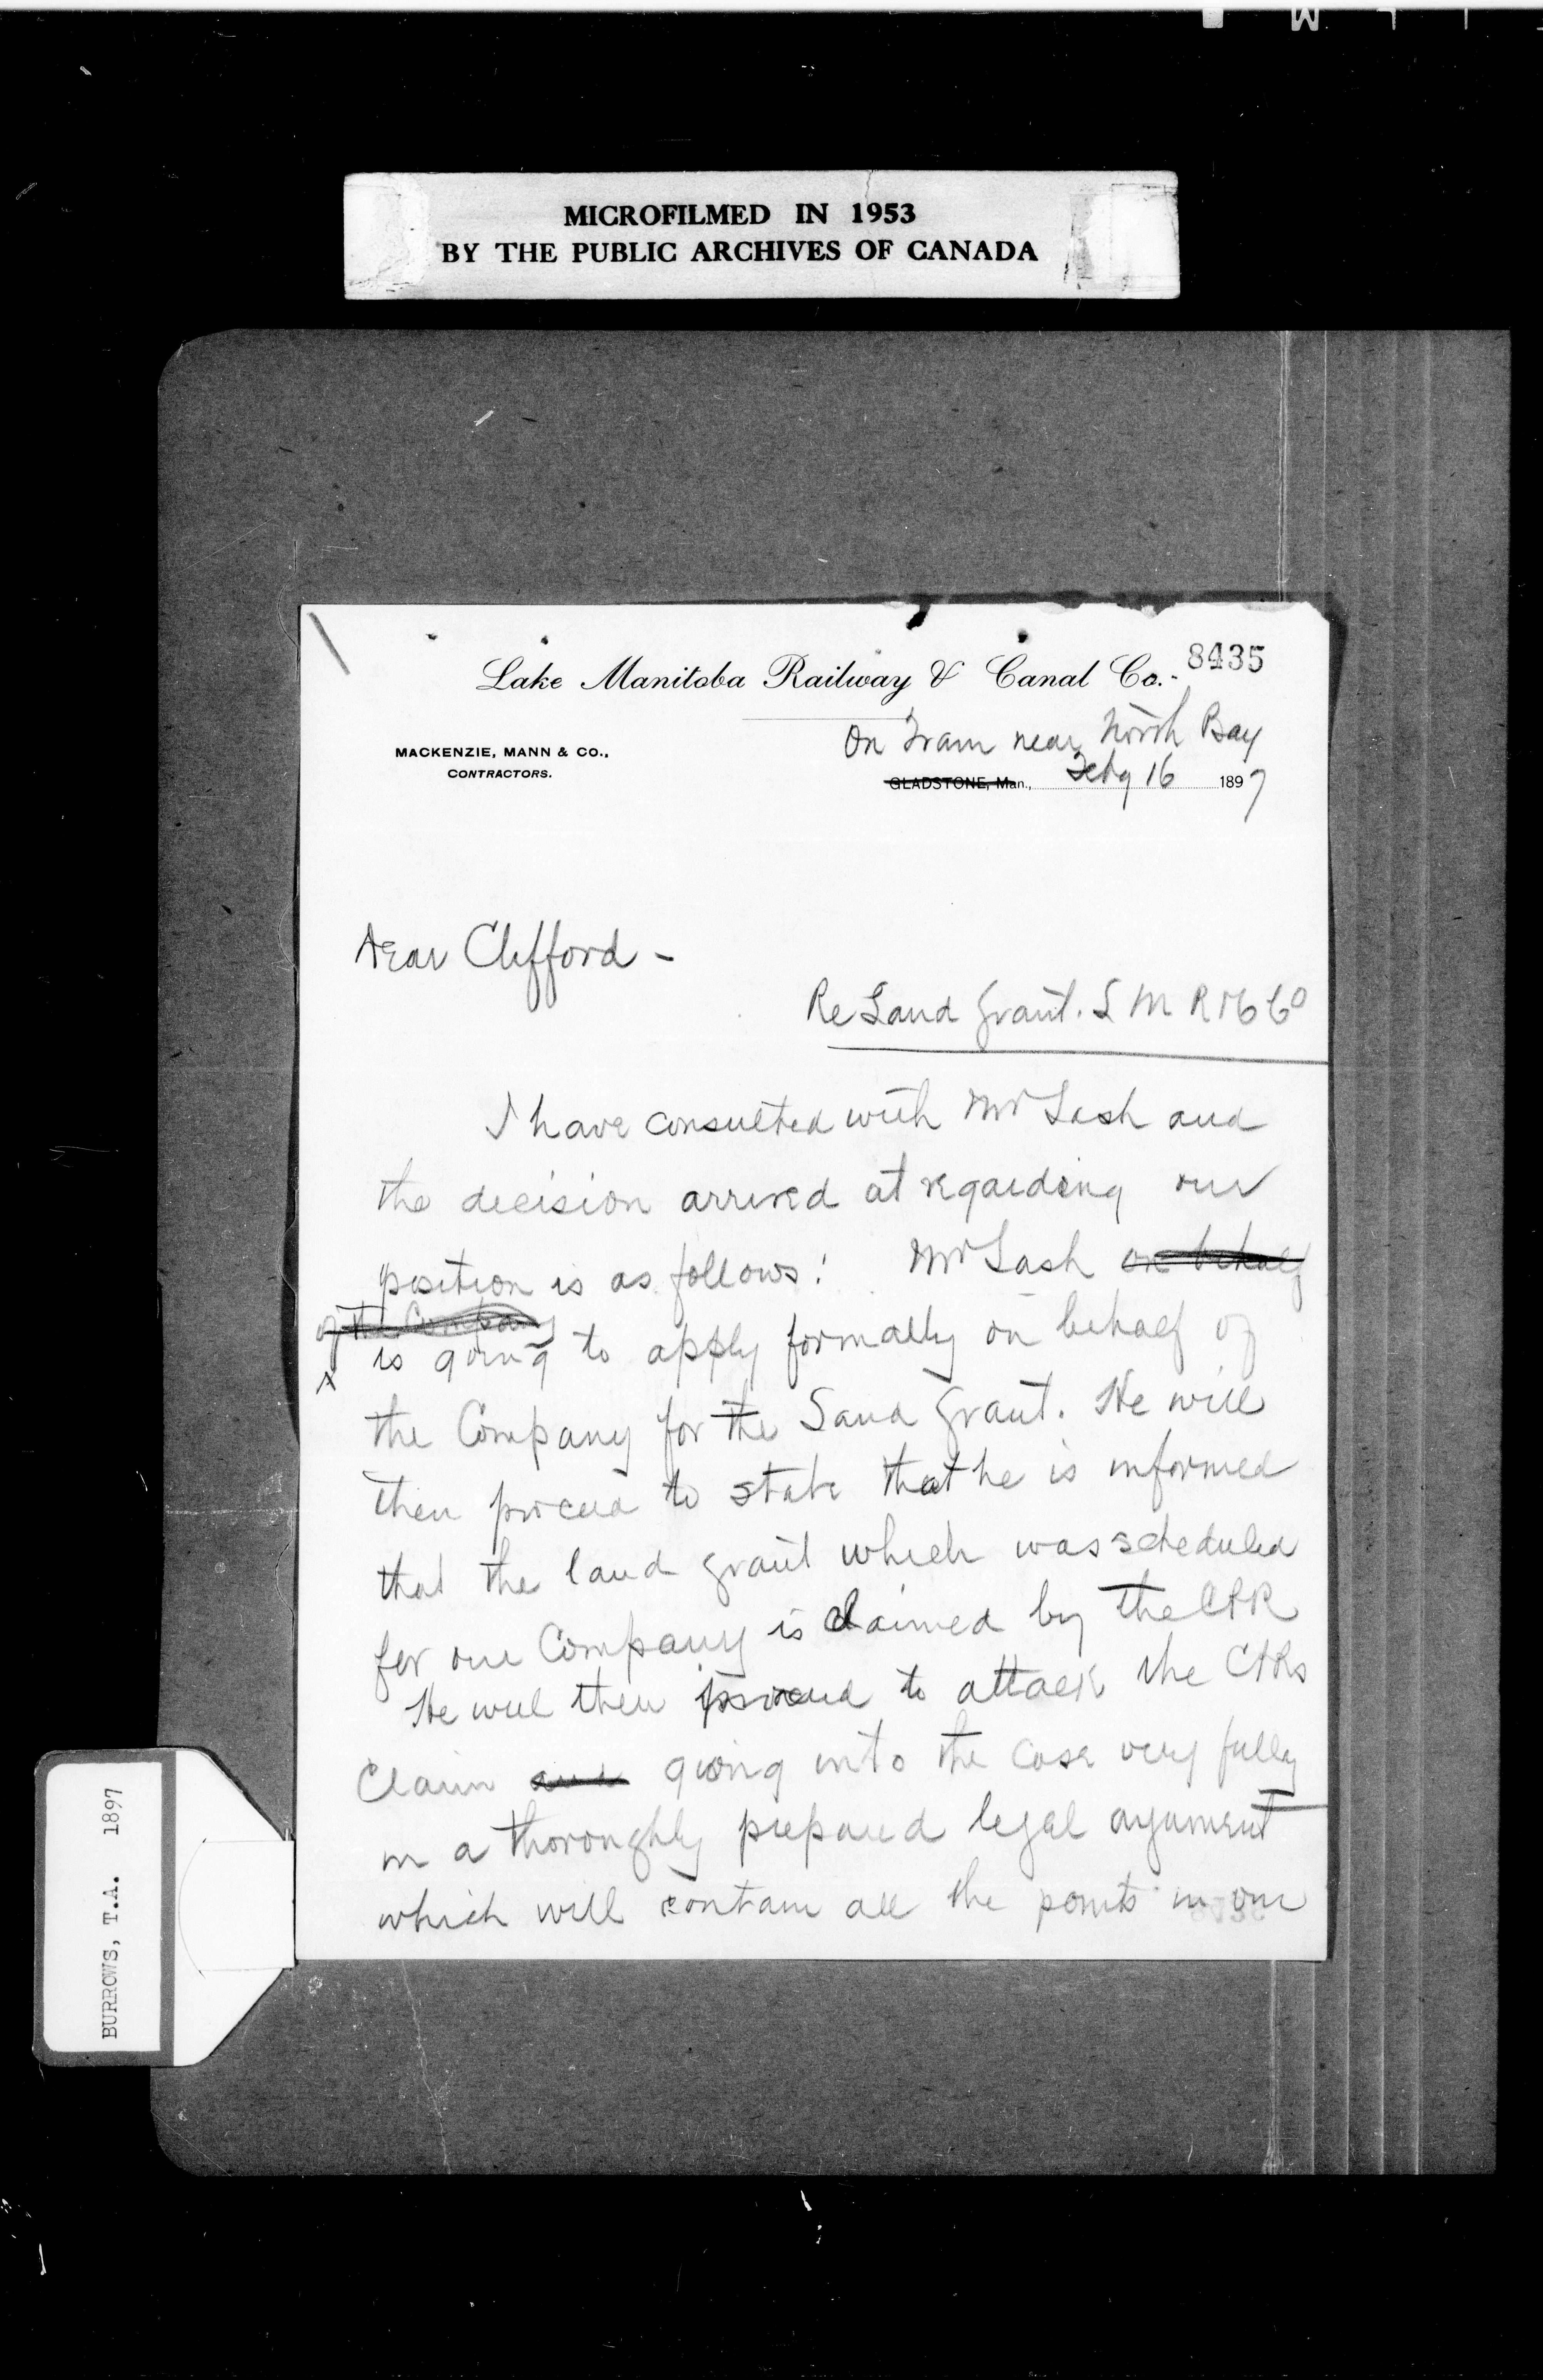 MICROFILMED IN 1953
BY THE PUBLIC ARCHIVES OF CANADA
8435
Lake Manitoba Railway & Canal Co.
On Train near North Bay
MACKENZIE, MANN & CO.,
CONTRACTORS.
GLADSTONE, Man., Feby 16 1897
Dear Clifford -
Re Land Grant. L M R Co
I have consulted with Mr Lash and
the decision arrived at regarding our
position is as follows: Mr Lash on behalf
of the Company
is going to apply formally on behalf of
the Company for the Land Grant. He will
then proceed to state that he is informed
that the land grant which was scheduled
for our Company is claimed by the CPR
He will then proceed to attack the CPRs
claim and going into the case very fully
in a thoroughly prepared legal argument
which will contain all the points in our
BURROWS, T.A. 1897